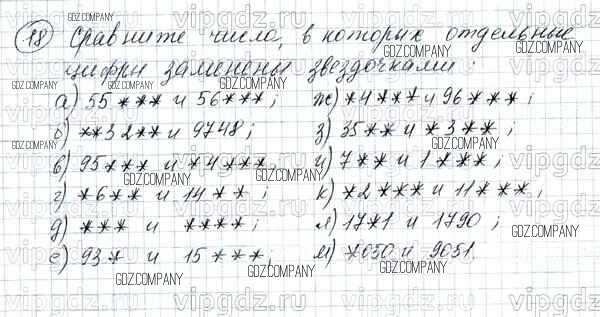 18 Сравните числа, в которых отдельные
цифры заменены звездочками:
а) 55*** и 56***;
б) **32** и 9748;
в) 95*** и *4***
г) *6** и 14**;
д) *** и ****;
е) 93* и 15***;
ж) *4*** и 96***;
з) 35** и *3**;
и) 7** и 1***;
к) *2*** и 11***;
л) 17*1 и 1790;
м) *050 и 9051.